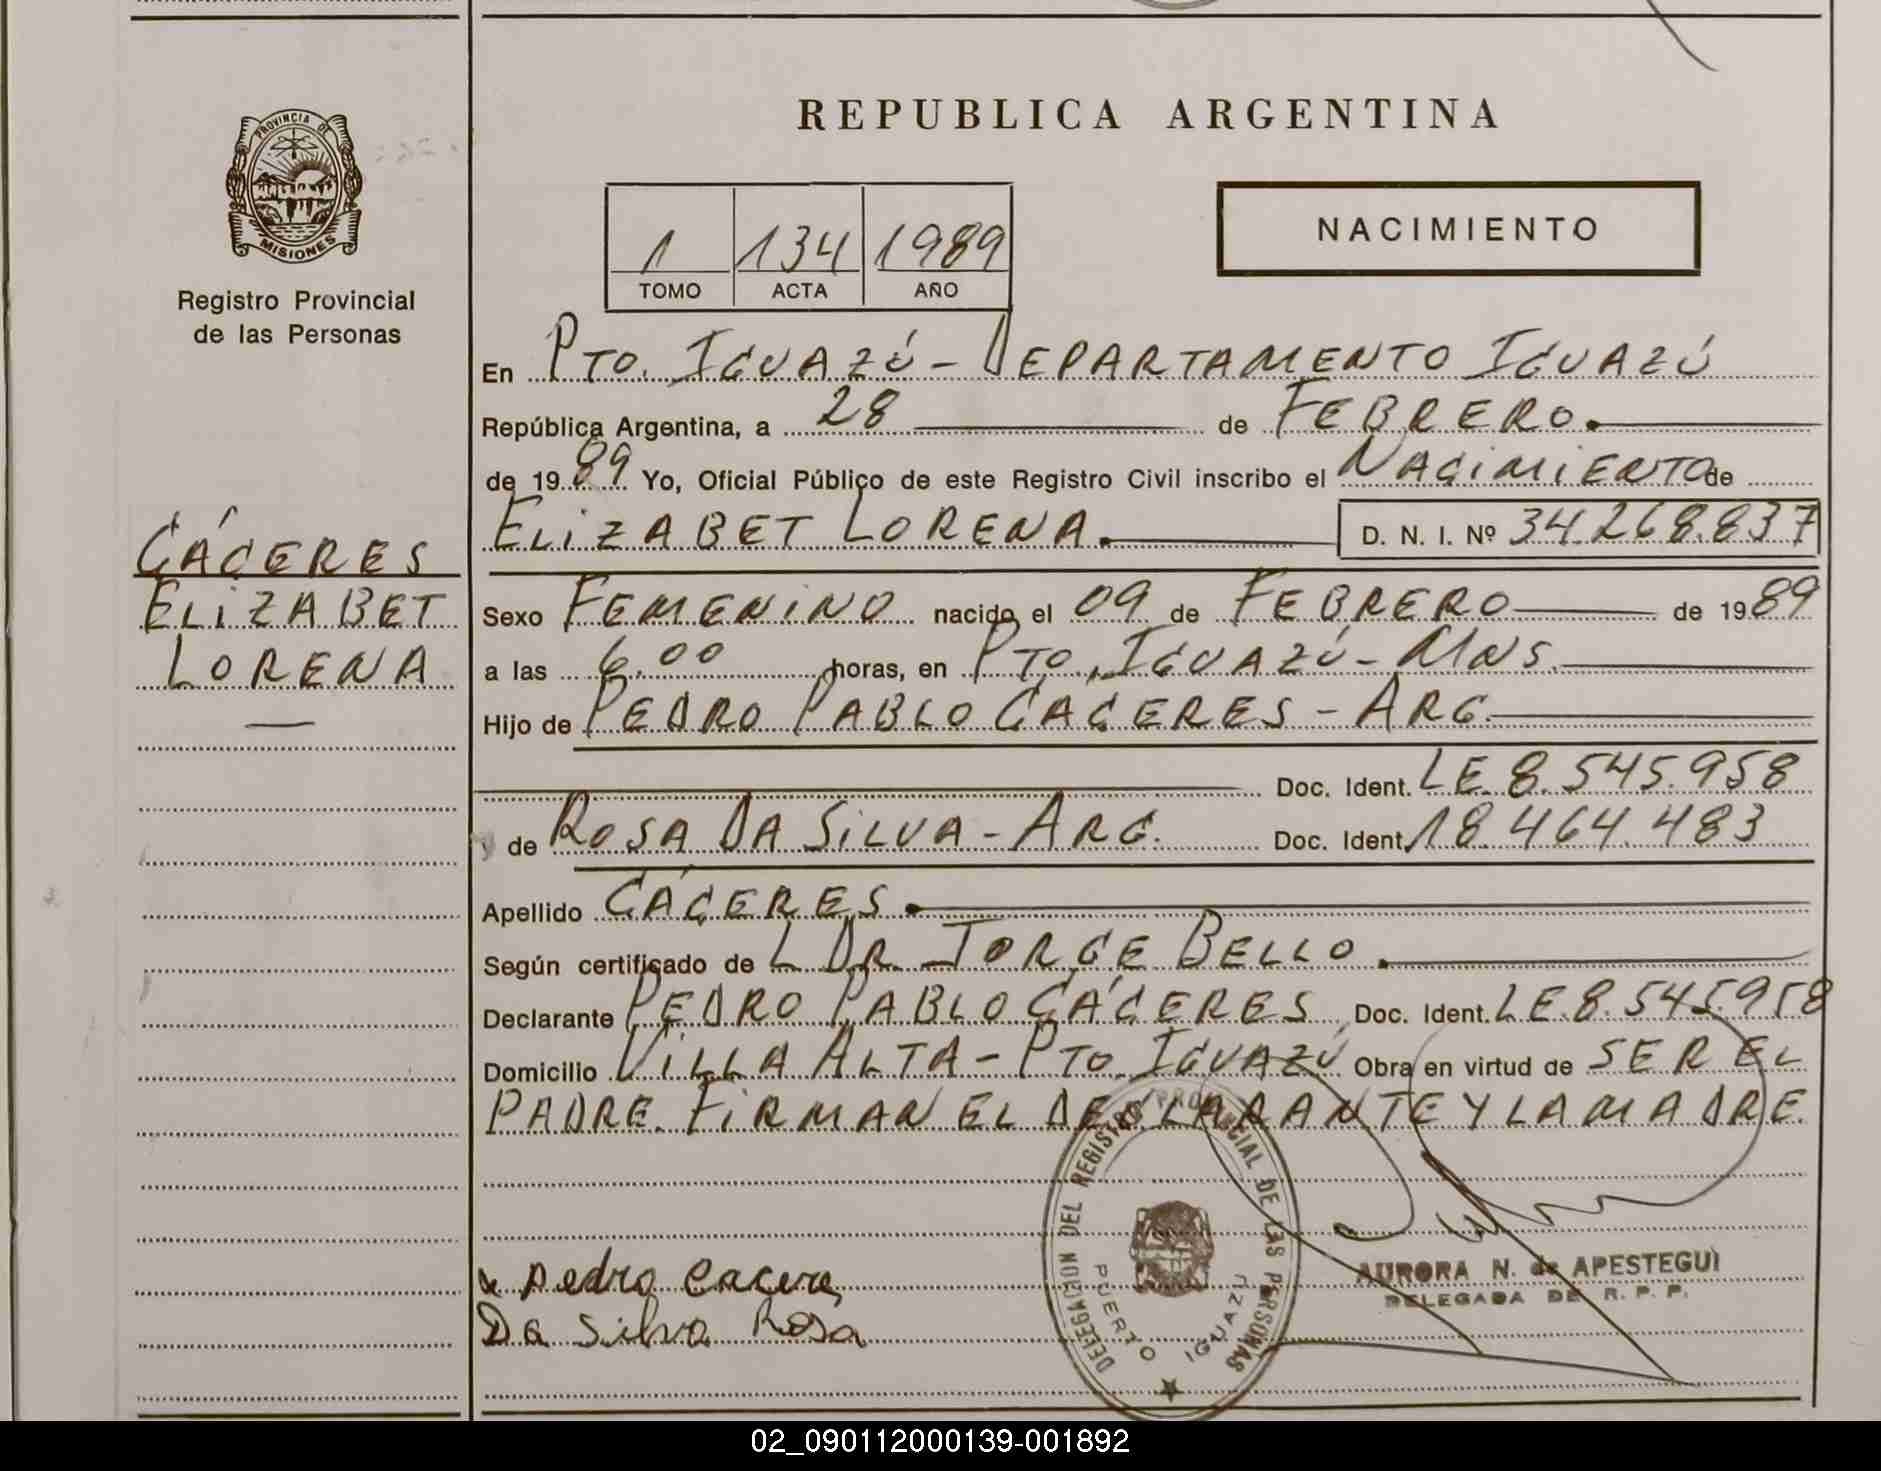 PROVINCIA DE
MISIONES
Registro Provincial
de las Personas
CÁCERES
ELIZABET
LORENA
REPUBLICA ARGENTINA
1 134 1989
TOMO ACTA AÑO
NACIMIENTO
En PTO. IGUAZÚ - DEPARTAMENTO IGUAZÚ
República Argentina, a 28 de FEBRERO.
de 1989 Yo, Oficial Público de este Registro Civil inscribo el NACIMIENTO de
ELIZABET LORENA. D. N. I. Nº 34.268.837
Sexo FEMENINO nacido el 09 de FEBRERO de 1989
a las 6.00 horas, en PTO. IGUAZÚ - MNS.
Hijo de PEDRO PABLO CÁCERES - ARG.
Doc. Ident. LE. 8.545.958
y de ROSA DA SILVA - ARG. Doc. Ident. 18.464.483
Apellido CÁCERES.
Según certificado de L DR. JORGE BELLO.
Declarante PEDRO PABLO CÁCERES Doc. Ident. LE. 8.545.958
Domicilio VILLA ALTA - PTO. IGUAZÚ Obra en virtud de SER EL
PADRE. FIRMAN EL DECLARANTE Y LA MADRE.
x pedro cacere
Da Silva Rosa
DELEGACION DEL REGISTRO PROVINCIAL DE LAS PERSONAS
PUERTO IGUAZU
AURORA N. de APESTEGUI
DELEGADA DE R. P. P.
02_090112000139-001892